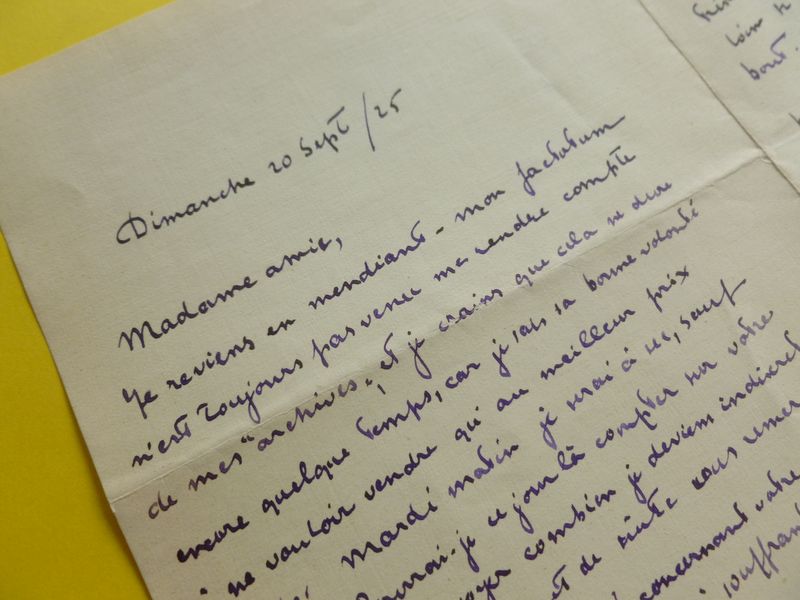 Dimanche 20 Sept /25
Madame amie,
Je reviens en mendiant - mon factotum
n'est toujours pas venu me rendre compte
de mes "archives", et je crains que cela ne dure
encore quelque temps, car je sais sa bonne volonté
ne vouloir vendre qu'au meilleur prix
Mardi matin je serai à sec, sauf
je ce jour là compter sur votre
combien je deviens indiscret
de suite vous
concernant votre
souffrant
loin
bout.